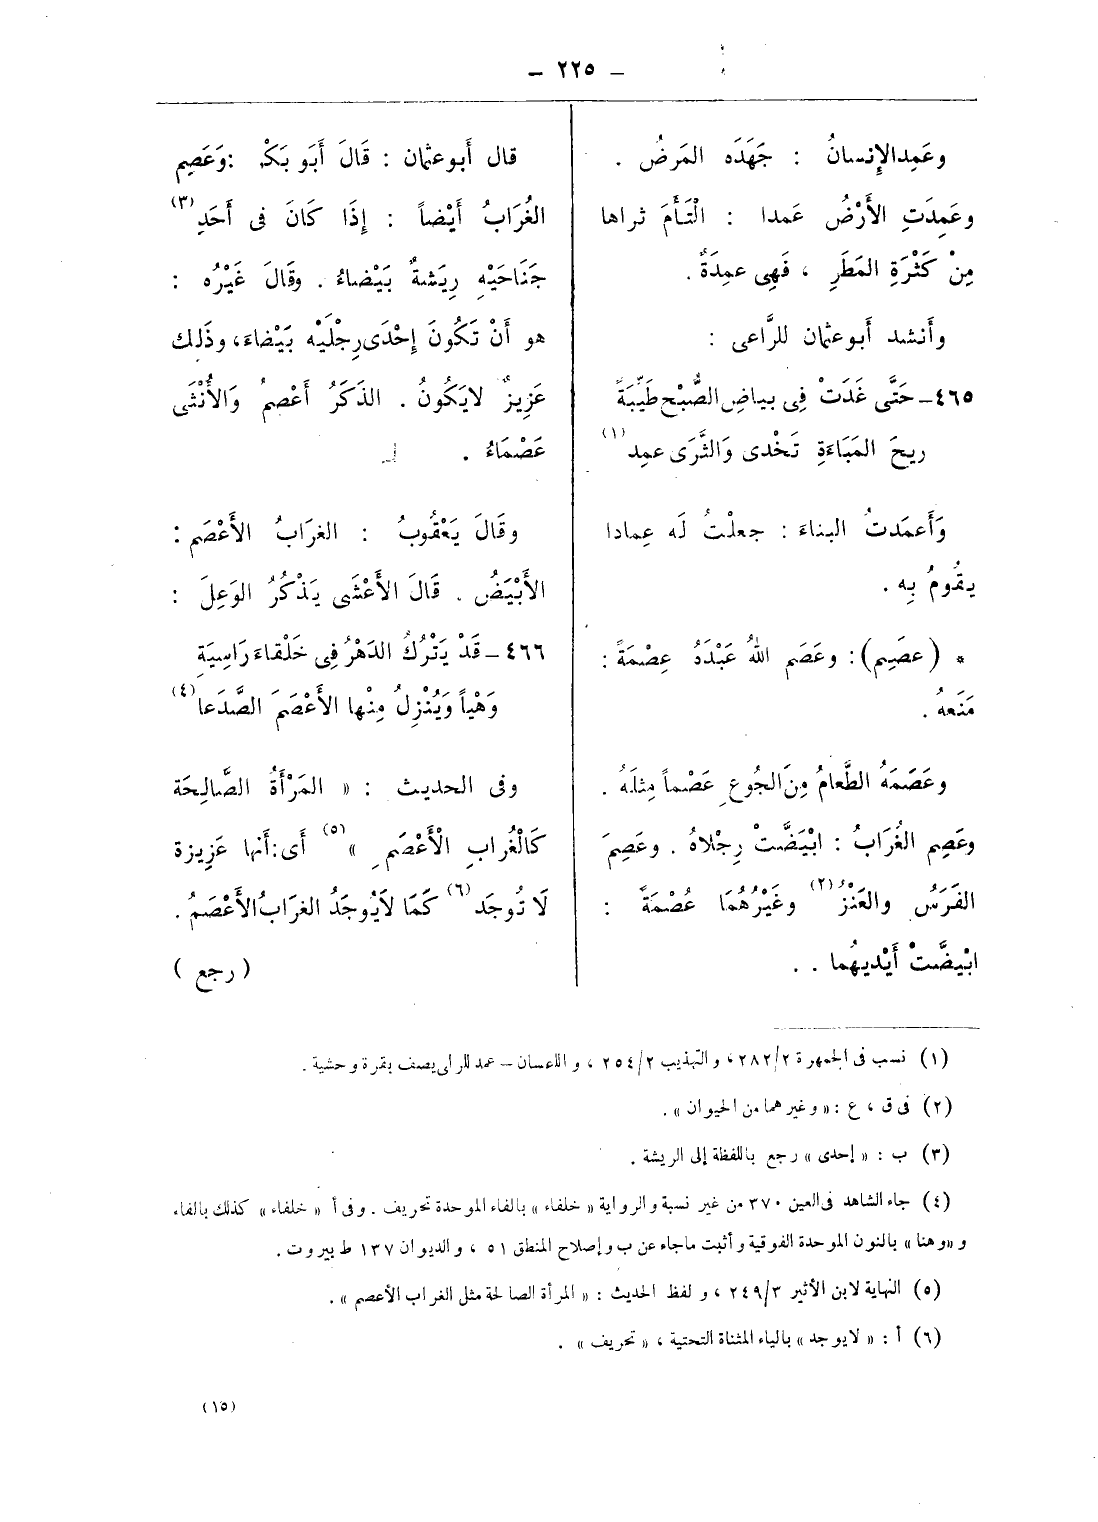 – ٢٢٥ –
وعَمِدالإنسانُ : جَهَدَه المَرضُ .
وعَمِدَتِ الأَرْضُ عَمدا : الْتَأَمَ ثراها
مِنْ كَثْرَةِ المَطَرِ ، فَهِى عمِدَةٌ .
وأَنشد أَبوعثمان للرَّاعى :
٤٦٥– حَتَّى غَدَتْ فِى بياضِ الصُّبْحِ طَيِّبَةً
ريحَ المَبَاءَةِ تَخْدى وَالثَّرَى عمِد(١)
وَأَعمَدتُ البناءَ : جعلْتُ لَه عِمادا
يقُومُ بِه .
* (عصَم) : وعَصَم اللهُ عَبْدَهُ عِصْمَةً :
مَنَعهُ .
وعَصَمَهُ الطَّعامُ مِنَ الجُوعِ عَصْماً مِثلَهُ .
وعَصِم الغُرَابُ : ابْيَضَّتْ رِجْلاهُ . وعَصِمَ
الفَرَسُ والعَنْزُ(٢) وغَيْرُهُمَا عُصْمَةً :
ابْيضَّتْ أَيْديهُما . .
قال أَبوعثمان : قَالَ أَبَو بَكْر :وَعَصِم
الغُرَابُ أَيْضاً : إِذَا كَانَ فى أَحَدِ(٣)
جَنَاحَيْهِ رِيَشةٌ بَيْضاءُ . وقَالَ غَيْرُه :
هو أَنْ تَكُونَ إِحْدَى رِجْلَيْه بَيْضاءَ، وذَلك
عَزِيزٌ لايَكُونُ . الذكَرُ أَعْصمُ وَالأُنْثَى
عَصْمَاءُ .
وقَالَ يَعْقُوبُ : الغرَابُ الأَعْصَم :
الأَبْيَضُ . قَالَ الأَعْشَى يَذْكُرُ الوَعِلَ :
٤٦٦– قَدْ يَتْرُكُ الدَهْرُ فِى خَلْقاءَ رَاسِيَةِ
وَهْياً وَيُنْزِلُ مِنْها الأَعْصَمَ الصَّدَعا(٤)
وفى الحديث : « المَرْأَةُ الصَّالِحَة
كَالْغُرابِ الْأَعْصَمِ »(٥) أَى:أَنها عَزِيزة
لَا تُوجَد(٦) كَمَا لَايُوجَدُ الغرَابُ الأَعْصَمُ .
( رجع )
(١) نسب فى الجمهرة ٢٨٢/٢ ، والتهذيب ٢٥٤/٢ ، واللسان – عمد للراعى يصف بقرة وحشية .
(٢) فى ق ، ع : « وغيرهما من الحيوان » .
(٣) ب : « إحدى » رجع باللفظة إلى الريشة .
(٤) جاء الشاهد فى العين ٣٧٠ من غير نسبة والرواية « خلفاء » بالفاء الموحدة تحريف . وفى أ « خلفاء » كذلك بالفاء
و «وهنا » بالنون الموحدة الفوقية وأثبت ماجاء عن ب وإصلاح المنطق ٥١ ، والديوان ١٣٧ ط بيروت .
(٥) النهاية لابن الأثير ٢٤٩/٣ ، ولفظ الحديث : « المرأة الصالحة مثل الغراب الأعصم » .
(٦) أ : « لايوجد » بالياء المثناة التحتية ، « تحريف » .
(١٥)